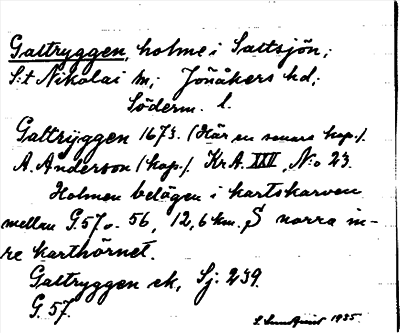 Galtryggen, holme i Saltsjön;
S:t Nikolai m; Jönåkers hd;
Söderm. l.
Galtryggen 1673. (Här en senare kop.).
A. Anderson (kop.). Kr A. XXV, N:o 23.
Holmen belägen i kartskarven
mellan G.57 o. 56, 12,6 km. S norra in-
re karthörnet.
Galtryggen ek, Sj. 239.
G.57.
1935.